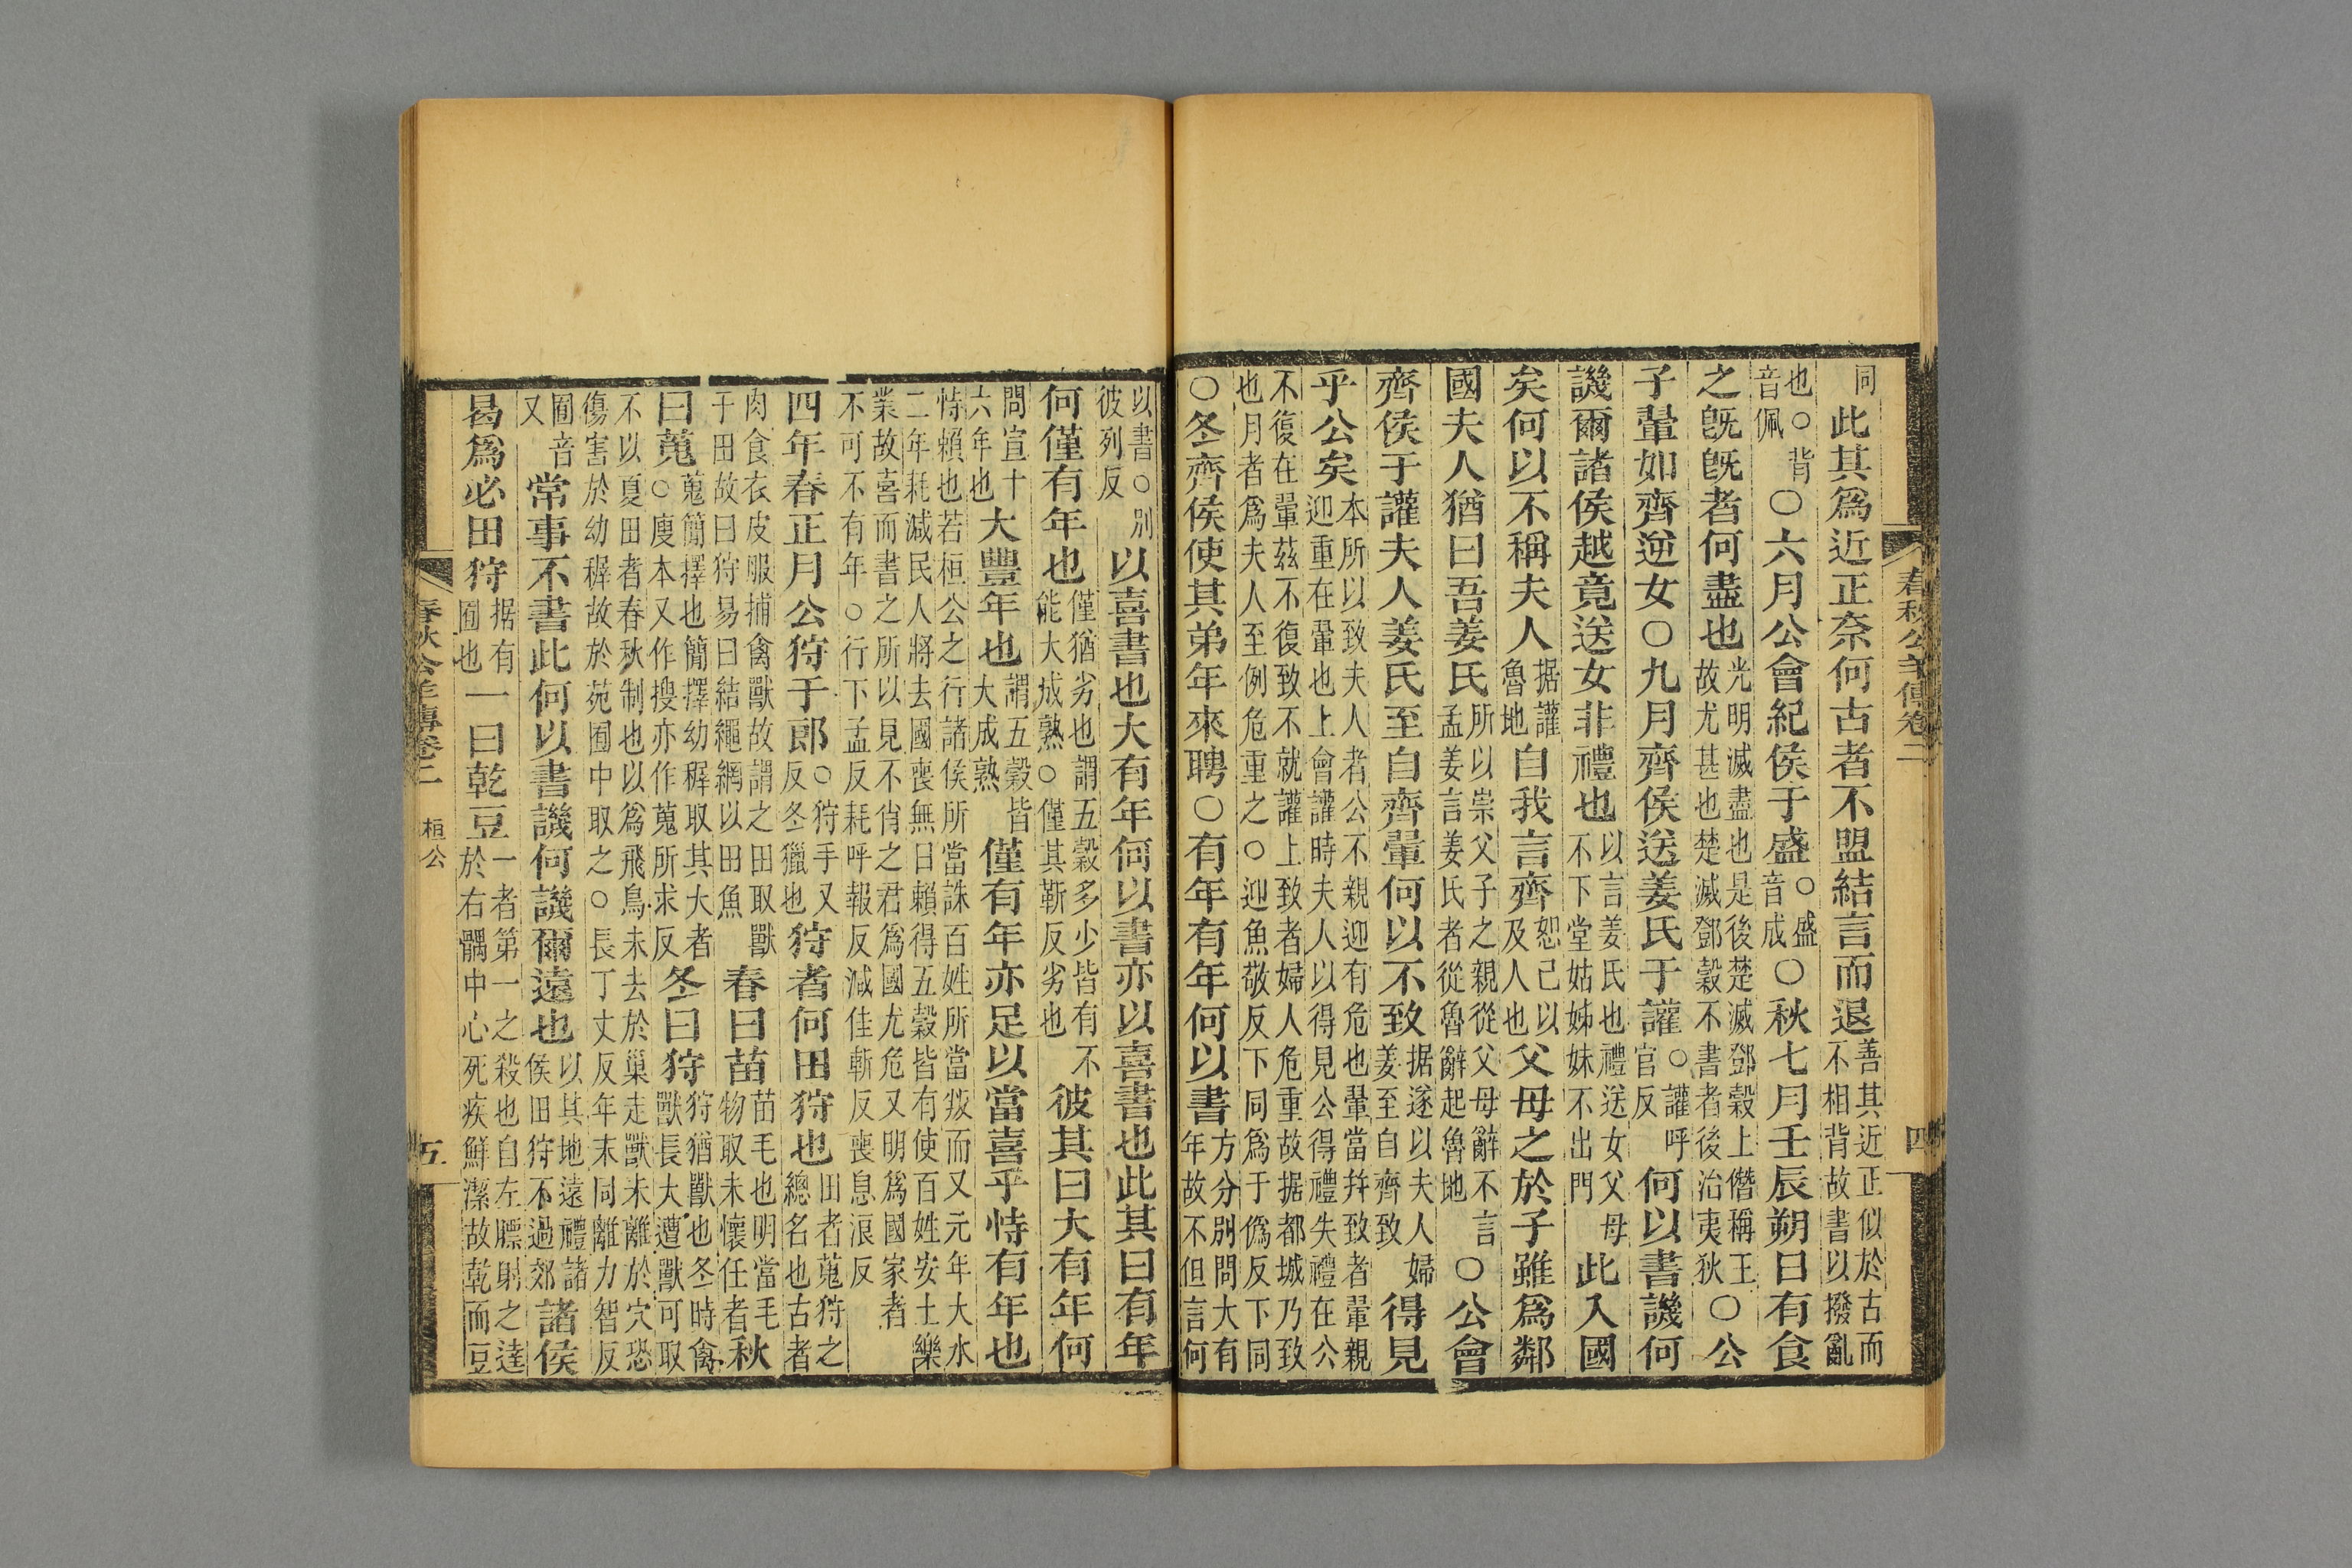 春秋公羊傳卷二
四
同此其爲近正奈何古者不盟結言而退善其近正似於古而不相背故書以撥亂
也○背音佩○六月公會紀侯于盛○盛音成○秋七月壬辰朔日有食
之旣旣者何盡也光明滅盡也是後楚滅鄧穀上僭稱王故尤甚也楚滅鄧穀不書者後治夷狄○公
子翬如齊逆女○九月齊侯送姜氏于讙○讙呼官反何以書譏何
譏爾諸侯越竟送女非禮也以言姜氏也禮送女父母不下堂姑姊妹不出門此入國
矣何以不稱夫人据讙魯地自我言齊恕己以及人也父母之於子雖爲鄰
國夫人猶曰吾姜氏所以崇父子之親從父母辭不言孟姜言姜氏者從魯辭起魯地○公會
齊侯于讙夫人姜氏至自齊翬何以不致据遂以夫人婦姜至自齊致得見
乎公矣本所以致夫人者公不親迎有危也翬當并致者翬親迎重在翬也上會讙時夫人以得見公得禮失禮在公
不復在翬茲不復致不就讙上致者婦人危重故据都城乃致也月者爲夫人至例危重之○迎魚敬反下同爲于僞反下同
○冬齊侯使其弟年來聘○有年有年何以書方分別問大有年故不但言何
以書○別彼列反以喜書也大有年何以書亦以喜書也此其曰有年
何僅有年也僅猶劣也謂五穀多少皆有不能大成熟○僅其靳反劣也彼其曰大有年何
問宣十六年也大豐年也謂五穀皆大成熟僅有年亦足以當喜乎恃有年也
恃賴也若桓公之行諸侯所當誅百姓所當叛而又元年大水二年耗減民人將去國喪無日賴得五穀皆有使百姓安土樂
業故喜而書之所以見不肖之君爲國尤危又明爲國家者不可不有年○行下孟反耗呼報反減佳斬反喪息浪反
四年春正月公狩于郎○狩手又反冬獵也狩者何田狩也田者蒐狩之總名也古者
肉食衣皮服捕禽獸故謂之田取獸于田故曰狩易曰結繩網以田魚春曰苗苗毛也明當毛物取未懷任者秋
曰蒐蒐簡擇也簡擇幼稺取其大者○廋本又作搜亦作蒐所求反冬曰狩狩猶獸也冬時禽獸長大遭獸可取
不以夏田者春秋制也以爲飛鳥未去於巢走獸未離於穴恐傷害於幼稺故於苑囿中取之○長丁丈反年末同離力智反
囿音又常事不書此何以書譏何譏爾遠也以其地遠禮諸侯田狩不過郊諸侯
曷爲必田狩据有囿也一曰乾豆一者第一之殺也自左膘射之達於右髃中心死疾鮮潔故乾而豆
春秋公羊傳卷二
桓公
五